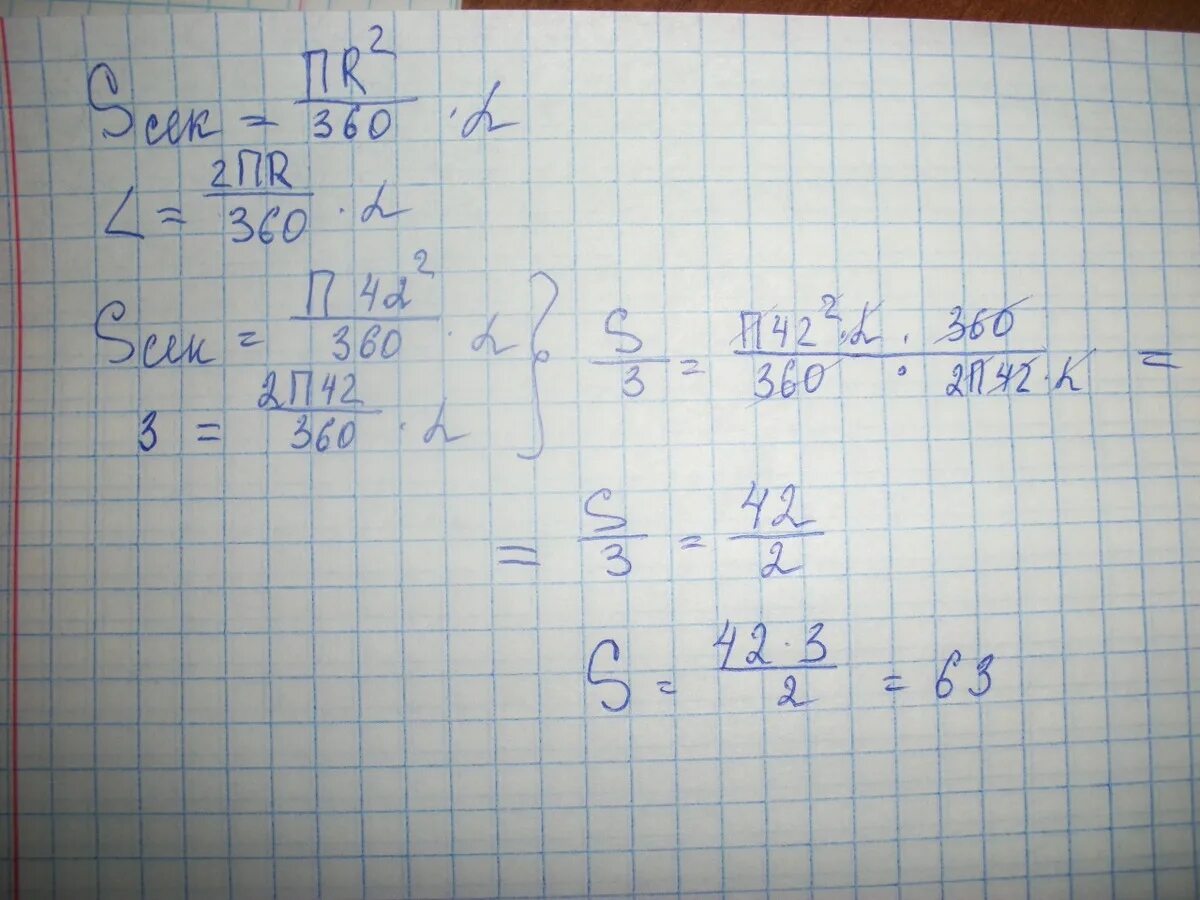 Sсек = ПR²/360 · α
L = 2ПR/360 · α
Sсек = П 42²/360 · α
3 = 2П42/360 · α
} S/3 = П42²·α · 360 / 360 · 2П42·α =
= S/3 = 42/2
S = 42·3/2 = 63